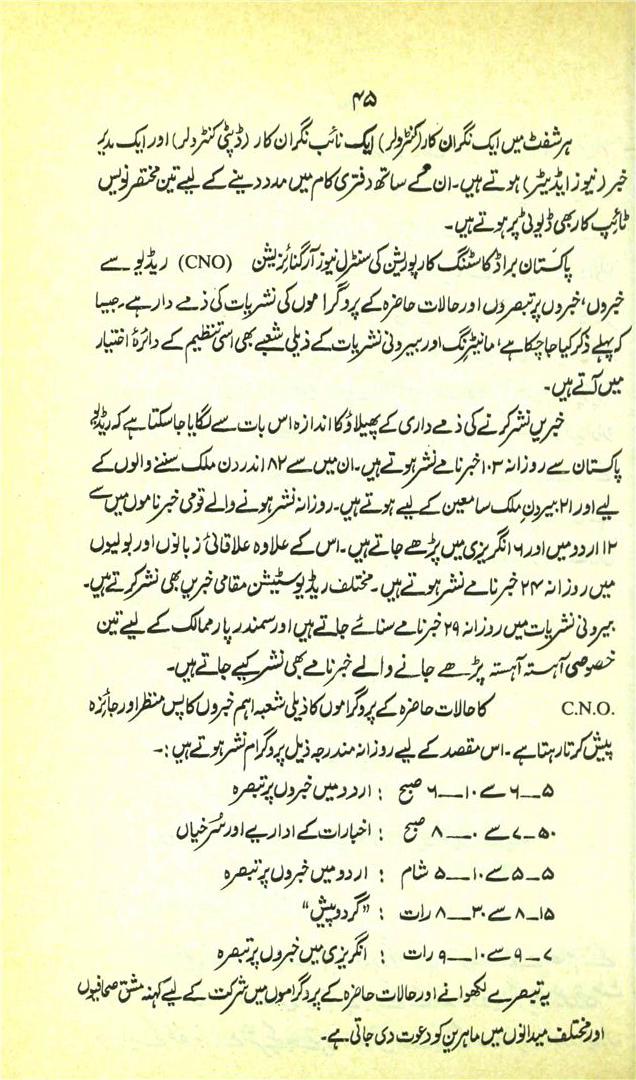 ۴۵
ہر شفٹ میں ایک نگران کار (کنٹرولر) ایک نائب نگران کار (ڈپٹی کنٹرولر) اور ایک مدیر
خبر (نیوز ایڈیٹر) ہوتے ہیں۔ ان کے ساتھ دفتری کام میں مدد دینے کے لیے تین مختصر نویس
ٹائپ کار بھی ڈیوٹی پر ہوتے ہیں۔
پاکستان براڈ کاسٹنگ کارپوریشن کی سنٹرل نیوز آرگنائزیشن (CNO) ریڈیو سے
خبروں، خبروں پر تبصروں اور حالات حاضرہ کے پروگراموں کی نشریات کی ذمے دار ہے۔ جیسا
کہ پہلے ذکر کیا جا چکا ہے، مانیٹرنگ اور بیرونی نشریات کے ذیلی شعبے بھی اسی تنظیم کے دائرۂ اختیار
میں آتے ہیں۔
خبریں نشر کرنے کی ذمے داری کے پھیلاؤ کا اندازہ اس بات سے لگایا جا سکتا ہے کہ ریڈیو
پاکستان سے روزانہ ۱۰۳ خبرنامے نشر ہوتے ہیں۔ ان میں سے ۸۲ اندرون ملک سننے والوں کے
لیے اور ۲۱ بیرونِ ملک سامعین کے لیے ہوتے ہیں۔ روزانہ نشر ہونے والے قومی خبر ناموں میں سے
۱۲ اردو میں اور ۶ انگریزی میں پڑھے جاتے ہیں۔ اس کے علاوہ علاقائی زبانوں اور بولیوں
میں روزانہ ۲۴ خبرنامے نشر ہوتے ہیں۔ مختلف ریڈیو سٹیشن مقامی خبریں بھی نشر کرتے ہیں۔
بیرونی نشریات میں روزانہ ۲۹ خبرنامے سنائے جاتے ہیں اور سمندر پار ممالک کے لیے تین
خصوصی آہستہ آہستہ پڑھے جانے والے خبرنامے بھی نشر کیے جاتے ہیں۔
C.N.O. کا حالات حاضرہ کے پروگراموں کا ذیلی شعبہ اہم خبروں کا پس منظر اور جائزہ
پیش کرتا رہتا ہے۔ اس مقصد کے لیے روزانہ مندرجہ ذیل پروگرام نشر ہوتے ہیں:۔
۵—۶ سے ۱۰—۶ صبح : اردو میں خبروں پر تبصرہ
۵۰—۷ سے ۰—۸ صبح : اخبارات کے اداریے اور سُرخیاں
۵—۵ سے ۱۰—۵ شام : اردو میں خبروں پر تبصرہ
۱۵—۸ سے ۳۰—۸ رات : "گردو پیش"
۷—۹ سے ۱۰—۹ رات : انگریزی میں خبروں پر تبصرہ
یہ تبصرے لکھوانے اور حالات حاضرہ کے پروگراموں میں شرکت کے لیے کہنہ مشق صحافیوں
اور مختلف میدانوں میں ماہرین کو دعوت دی جاتی ہے۔